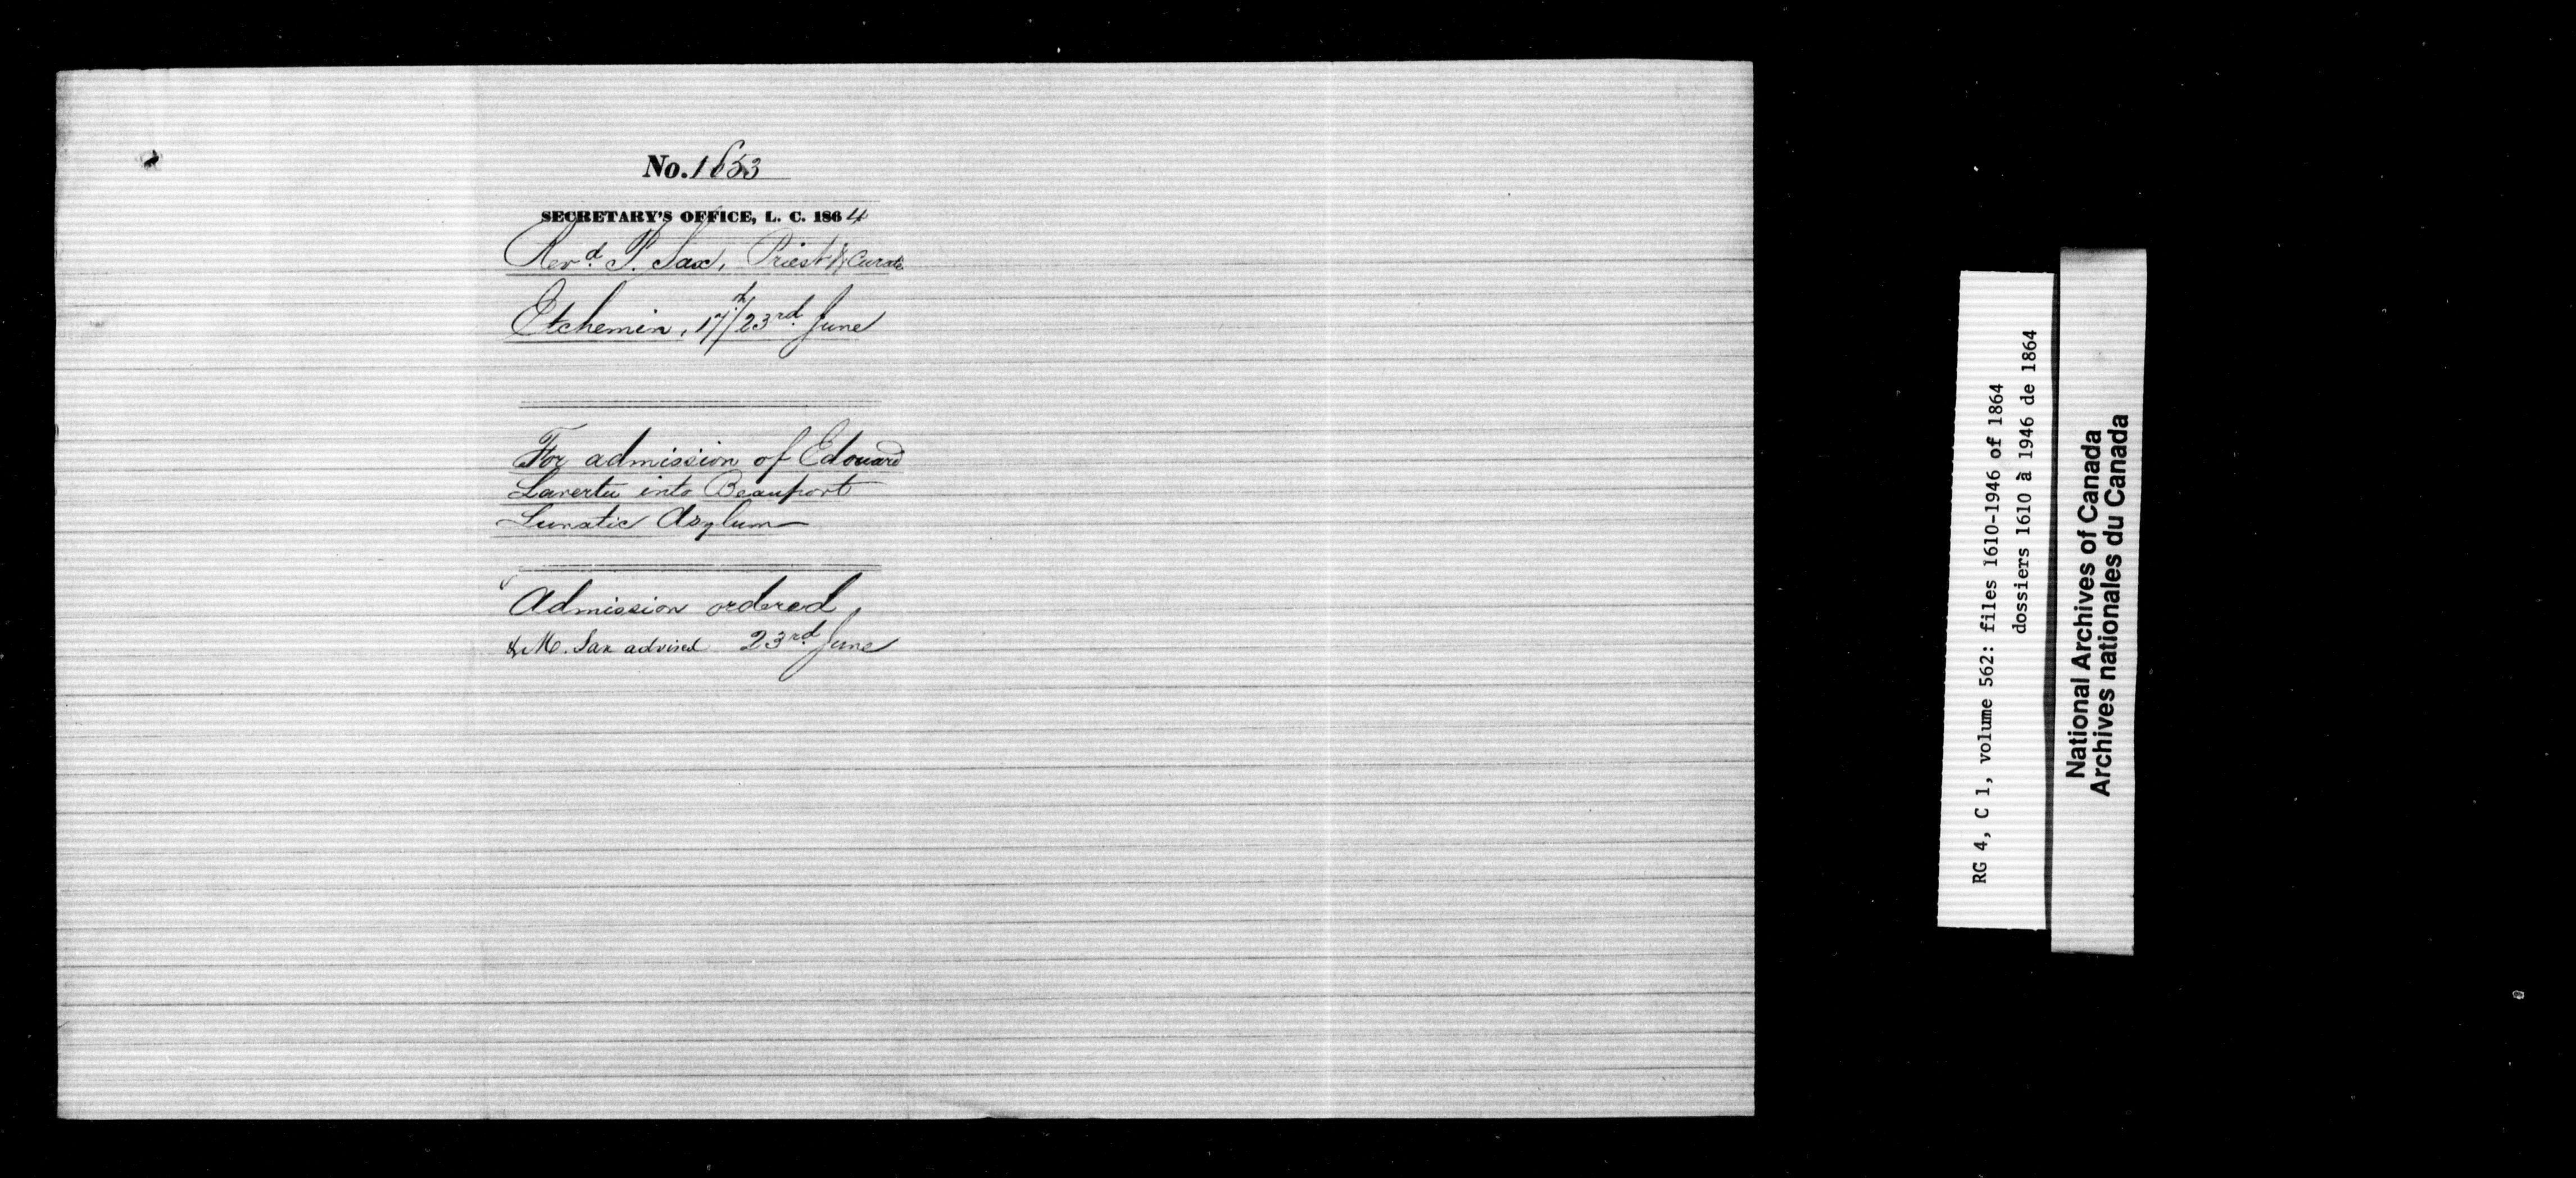 No. 1653
SECRETARY'S OFFICE, L. C. 1864
Revd P. Sax, Priest & Curate
Etchemin, 17th/23rd June
For admission of Edouard
Lavertu into Beauport
Lunatic Asylum
Admission ordered
& M. Sax advised 23rd June
RG 4, C 1, volume 562: files 1610-1946 of 1864
dossiers 1610 à 1946 de 1864
National Archives of Canada
Archives nationales du Canada